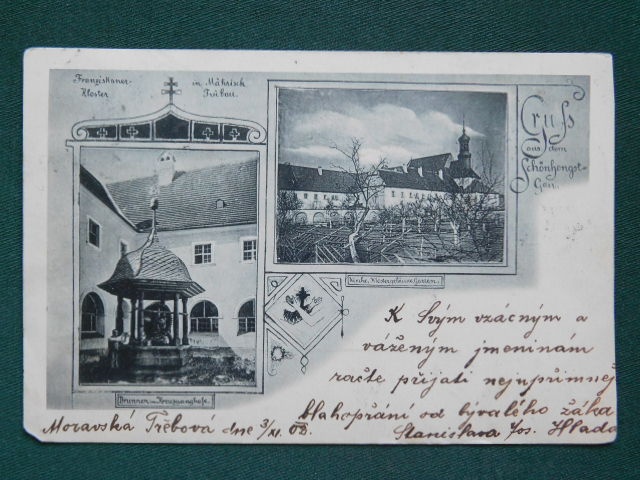 Franziskaner-
Kloster
in Mährisch
Trübau.
Gruss
aus dem
Schönhengst-
Gau.
Kirche, Kloster
Brunnen im Kreuzganghofe.
K Svým vzácným a
váženým jmeninám
račte přijati nejupřímnej
blahopřání od bývalého žáka
Moravská Třebová dne 3/XI. 02.
Stanislava Hlado